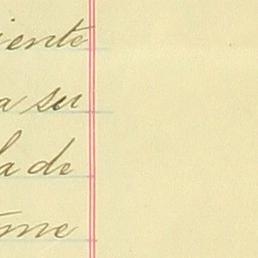 iente
a su
la de
me